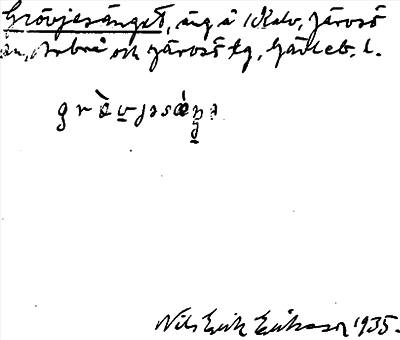 Grövjesänget, äng å Kalv, Järvsö
sn, Arbrå och Järvsö tg, Gävleb. l.
grævjəsæŋə
Nils Erik Eriksson 1935.